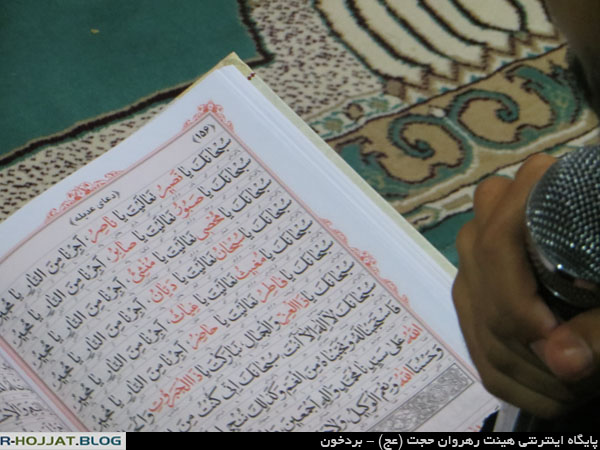 (۱۵۶)
(دعای عدیله)
سُبْحَانَكَ يَا نَصِيرُ تَعَالَيْتَ يَا نَاصِرُ اَجِرْنَا مِنَ النَّارِ يَا مُجِيرُ
سُبْحَانَكَ يَا صَبُورُ تَعَالَيْتَ يَا صَابِرُ اَجِرْنَا مِنَ النَّارِ يَا مُجِيرُ
سُبْحَانَكَ يَا مُحْصِي تَعَالَيْتَ يَا مُنْشِئُ اَجِرْنَا مِنَ النَّارِ يَا مُجِيرُ
سُبْحَانَكَ يَا سُبْحَانُ تَعَالَيْتَ يَا دَيَّانُ اَجِرْنَا مِنَ النَّارِ يَا مُجِيرُ
سُبْحَانَكَ يَا مُغِيثُ تَعَالَيْتَ يَا غِيَاثُ اَجِرْنَا مِنَ النَّارِ يَا مُجِيرُ
سُبْحَانَكَ يَا فَاطِرُ تَعَالَيْتَ يَا حَاضِرُ اَجِرْنَا مِنَ النَّارِ يَا مُجِيرُ
سُبْحَانَكَ يَا ذَا الْعِزِّ وَالْجَمَالِ تَبَارَكْتَ يَا ذَا الْجَبَرُوتِ
سُبْحَانَكَ لَا اِلٰهَ اِلَّا اَنْتَ سُبْحَانَكَ اِنِّي كُنْتُ مِنَ
فَاسْتَجَبْنَا لَهُ وَنَجَّيْنَاهُ مِنَ الْغَمِّ وَكَذٰلِكَ نُنْجِي
اللهُ عَلٰى سَيِّدِنَا مُحَمَّدٍ وَآلِهِ اَجْمَعِينَ
وَحَسْبُنَا اللهُ وَنِعْمَ الْوَكِيلُ وَلَا
R-HOJJAT.BLOG
پایگاه اینترنتی هیئت رهروان حجت (عج) – بردخون